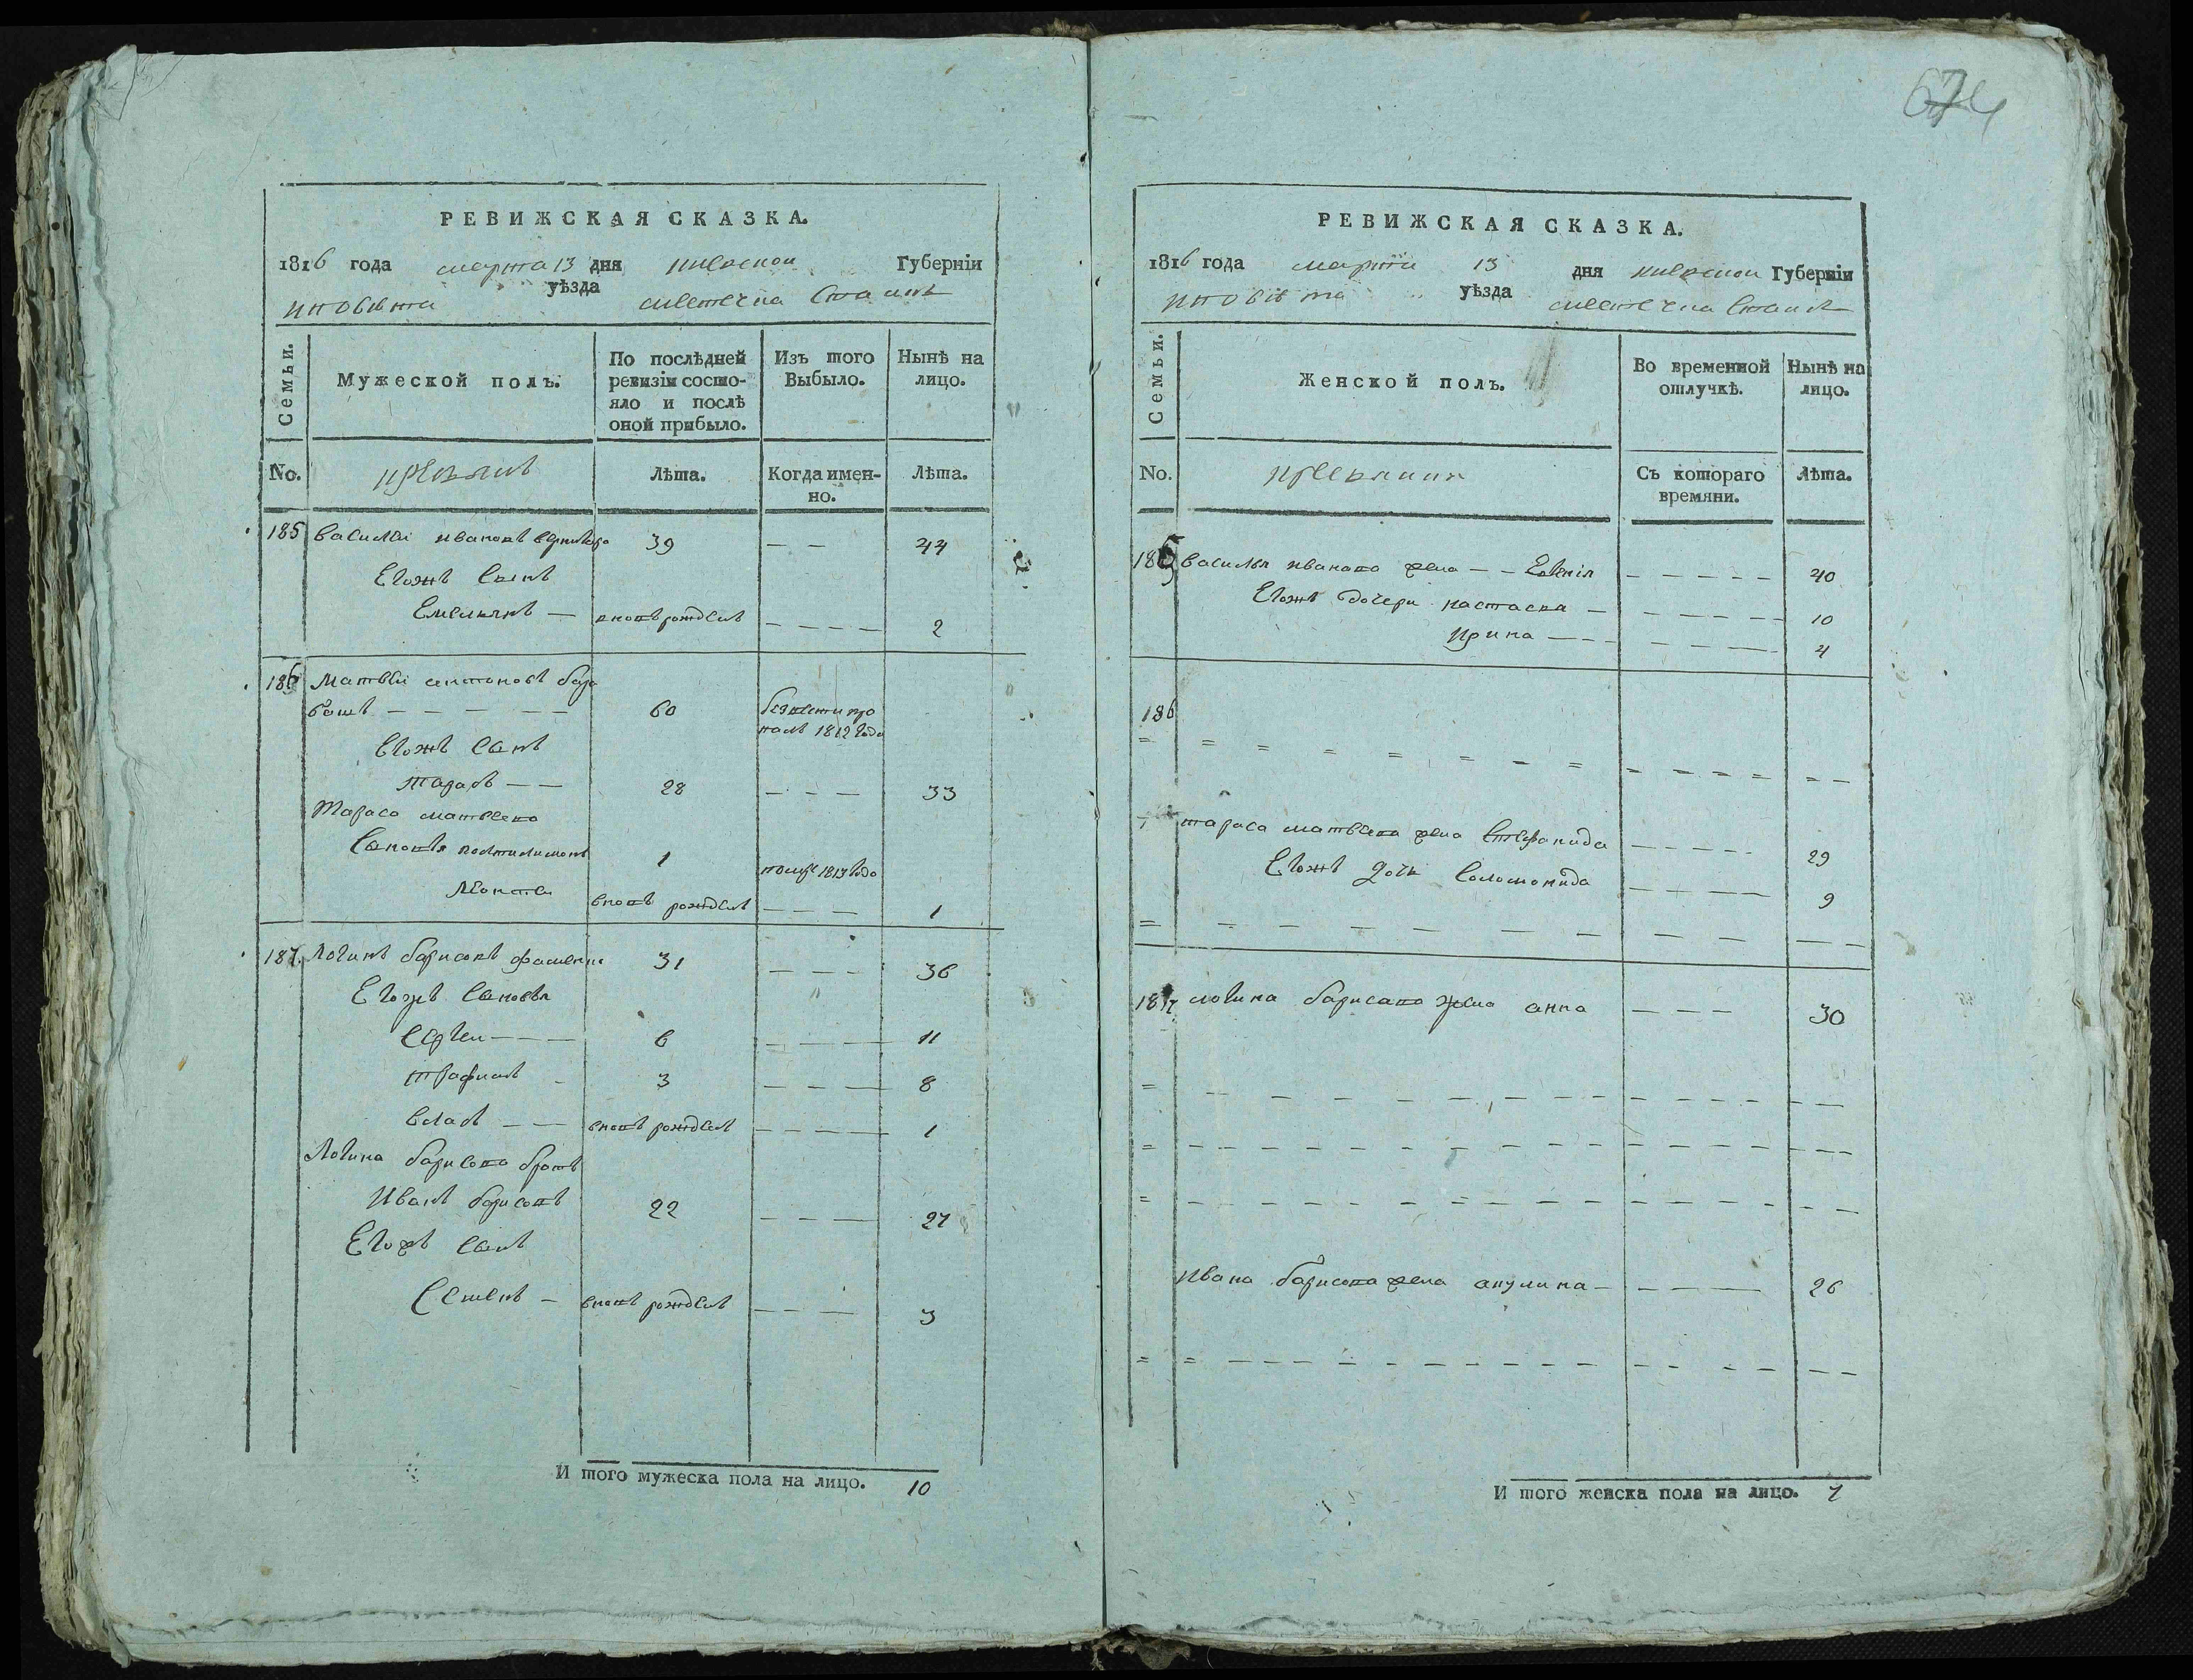 674
РЕВИЖСКАЯ СКАЗКА.
1816 года марта 13 дня киевской Губерніи
уѣзда
местечка
Семьи.
Мужеской полъ.
По послѣдней ревизіи состо-
яло и послѣ
оной прибыло.
Изъ того
Выбыло.
Нынѣ на
лицо.
No.
Лѣта.
Когда имен-
но.
Лѣта.
185 василеи ивановъ 39 — — 44
Егожъ сынъ
Емельянъ — вновь рожденъ — — — — 2
186 Матвеи антоновъ
60 безвести про
палъ 1812 года
Егожъ сынъ
тарасъ — — 28 — — — 33
Тараса матвеева
сыновья 1 помре 1813 года
Леонтеи вновь рожденъ — — — 1
187. Логинъ борисовъ 31 — — — 36
Егожъ сыновья
Сергеи — — — 6 — — — 11
трофимъ 3 — — — 8
власъ — — вновь рожденъ — — — — 1
Логина борисова братъ
Иванъ борисовъ 22 — — — 27
Егожъ сынъ
Семенъ — вновь рожденъ — — — 3
И того мужеска пола на лицо. 10
РЕВИЖСКАЯ СКАЗКА.
1816 года марта 13 дня киевской Губерніи
уѣзда
местечка
Семьи.
Женской полъ.
Во временной
отлучкѣ.
Нынѣ на
лицо.
No.
Съ котораго
времяни.
Лѣта.
185 василья иванова жена — — Евгенія — — — — — 40
Егожъ дочери настасья — — — — — — 10
Ирина — — — — — — — 4
186
тараса матвеева жена Степанида — — — — — 29
Егожъ дочь Соломонида — — — — 9
187 логина борисова жена анна — — — 30
Ивана борисова жена акулина — — — — — 26
И того женска пола на лицо. 7